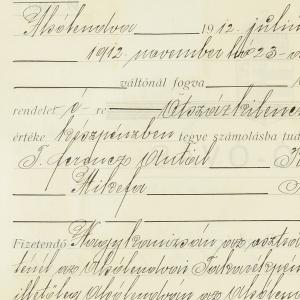 Alsólendva 1912. julius
1912. november hó 23-
váltónál fogva
rendelet é- re Ötszázkilenc
értéke készpénzben tegye számolásba tud
T. Ferencz Antal
Mikefa
Fizetendő Nagykanizsán az osztrá
ténél az Alsólendvai Takarékpén
illetőleg Alsólendván az Alsólen